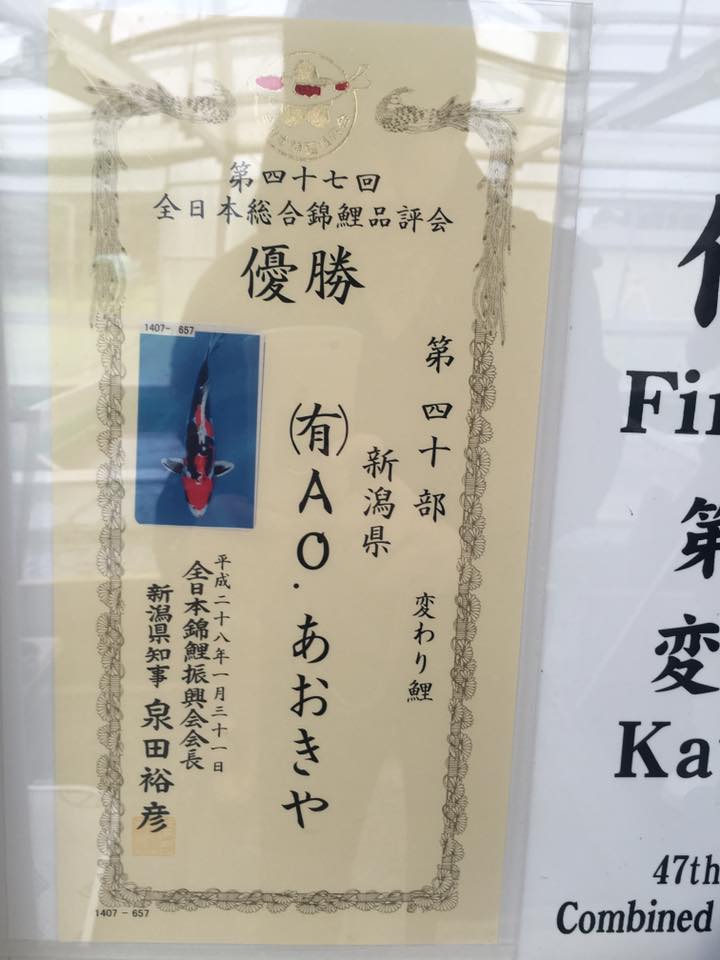 第四十七回
全日本総合錦鯉品評会
優勝
1407- 657
第四十部
変わり鯉
新潟県
(有)AO.あおきや
平成二十八年一月三十一日
全日本錦鯉振興会会長
新潟県知事 泉田裕彦
1407 - 657
Fi
第
変
Ka
47th
Combined